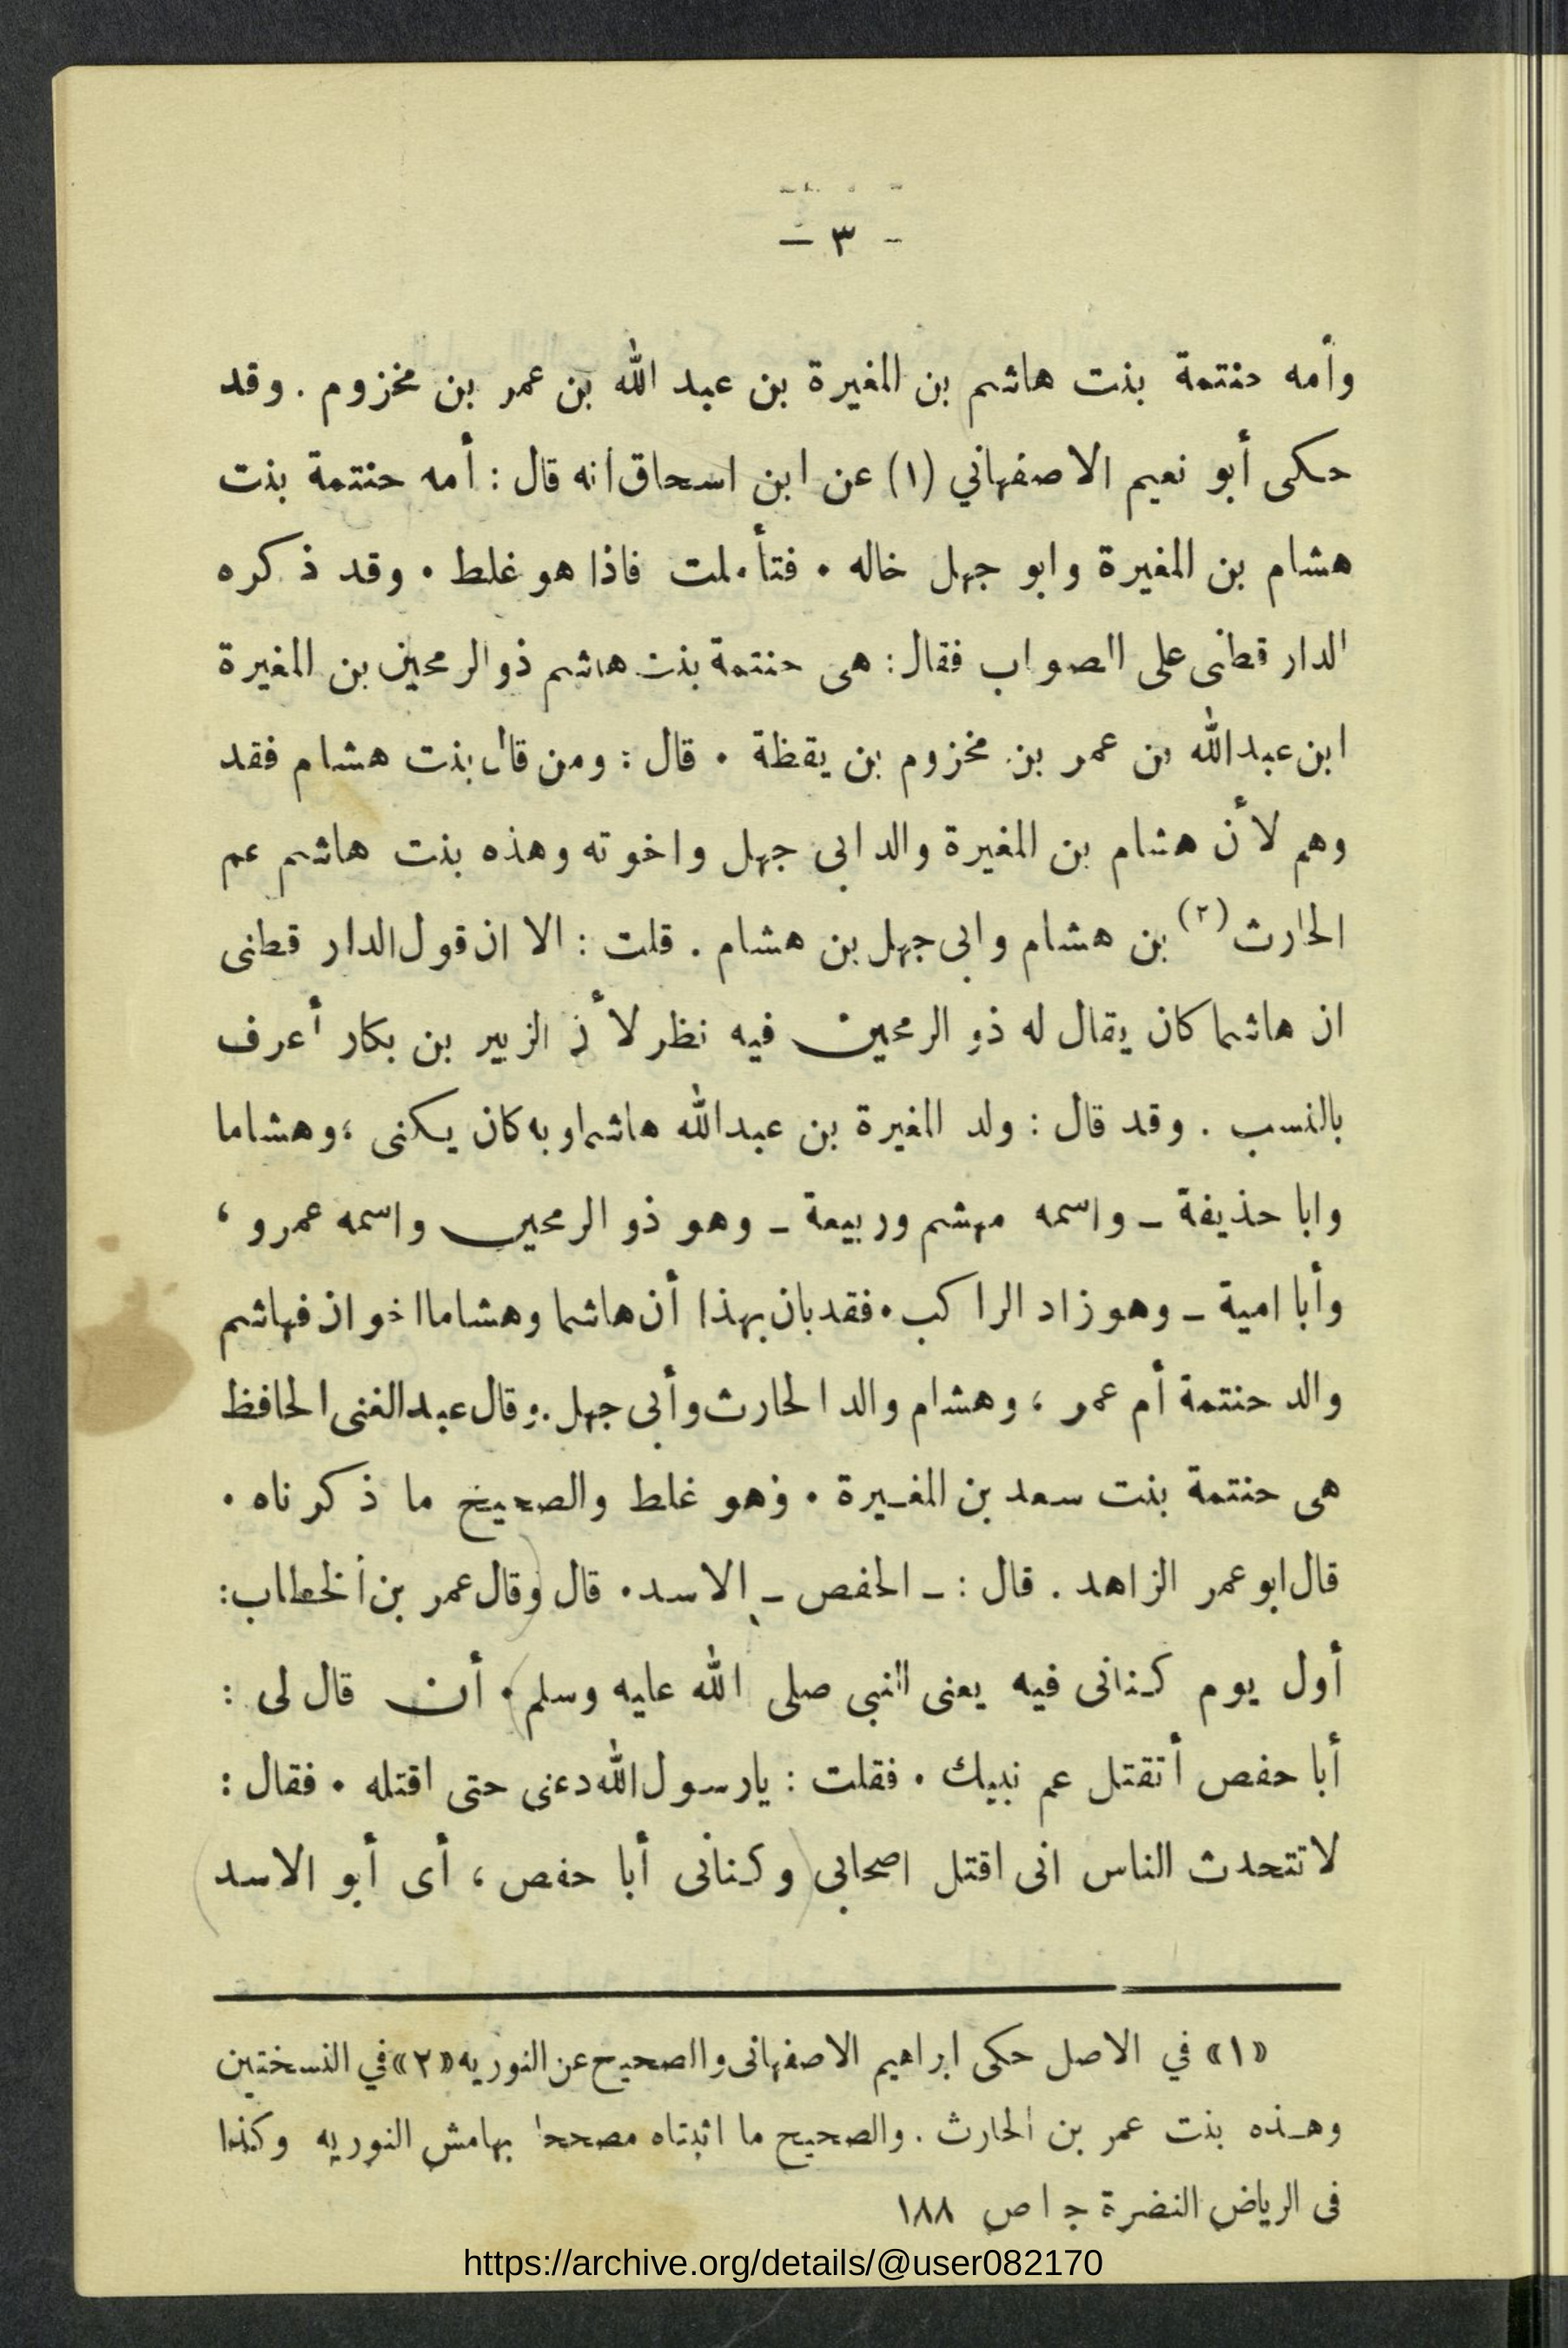 - ٣ -
وأمه حنتمة بنت هاشم بن المغيرة بن عبد الله بن عمر بن مخزوم . وقد
حكى أبو نعيم الاصفهاني (١) عن ابن اسحاق انه قال : أمه حنتمة بنت
هشام بن المغيرة وابو جهل خاله . فتأملت فاذا هو غلط . وقد ذكره
الدار قطنى على الصواب فقال : هى حنتمة بنت هاشم ذو الرمحين بن المغيرة
ابن عبد الله بن عمر بن مخزوم بن يقظة . قال : ومن قال بنت هشام فقد
وهم لأن هشام بن المغيرة والد ابى جهل واخوته وهذه بنت هاشم عم
الحارث (٢) بن هشام وابى جهل بن هشام . قلت : الا ان قول الدار قطنى
ان هاشما كان يقال له ذو الرمحين فيه نظر لأن الزبير بن بكار أعرف
بالنسب . وقد قال : ولد المغيرة بن عبد الله هاشما وبه كان يكنى ؛ وهشاما
وابا حذيفة ـ واسمه مهشم وربيعة ـ وهو ذو الرمحين واسمه عمرو ،
وأبا امية ـ وهو زاد الراكب . فقد بان بهذا أن هاشما وهشاما اخوان فهاشم
والد حنتمة أم عمر ؛ وهشام والد الحارث وأبى جهل . وقال عبد الغنى الحافظ
هى حنتمة بنت سعد بن المغيرة . وهو غلط والصحيح ما ذكرناه .
قال ابو عمر الزاهد . قال : ـ الحفص ـ الاسد . قال وقال عمر بن الخطاب :
أول يوم كنانى فيه يعنى النبى صلى الله عليه وسلم . أن قال لى :
أبا حفص أتقتل عم نبيك . فقلت : يارسول الله دعنى حتى اقتله . فقال :
لا تتحدث الناس انى اقتل اصحابى وكنانى أبا حفص ، أى أبو الاسد
«١» في الاصل حكى ابراهيم الاصفهانى والصحيح عن النوريه «٢» في النسختين
وهذه بنت عمر بن الحارث . والصحيح ما اثبتناه مصححا بهامش النوريه وكذا
فى الرياض النضرة ج ١ ص ١٨٨
https://archive.org/details/@user082170